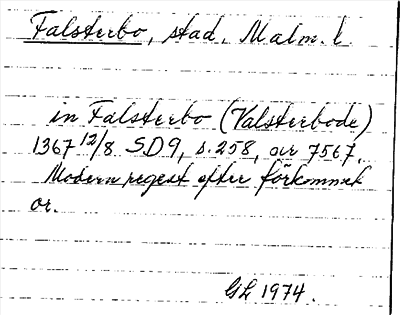 Falsterbo, stad. Malm. l
in Falsterbo (Valsterbode)
1367 12/8 SD9, s. 258, or 7567.
Modern regest efter förkommet
or.
GL 1974.